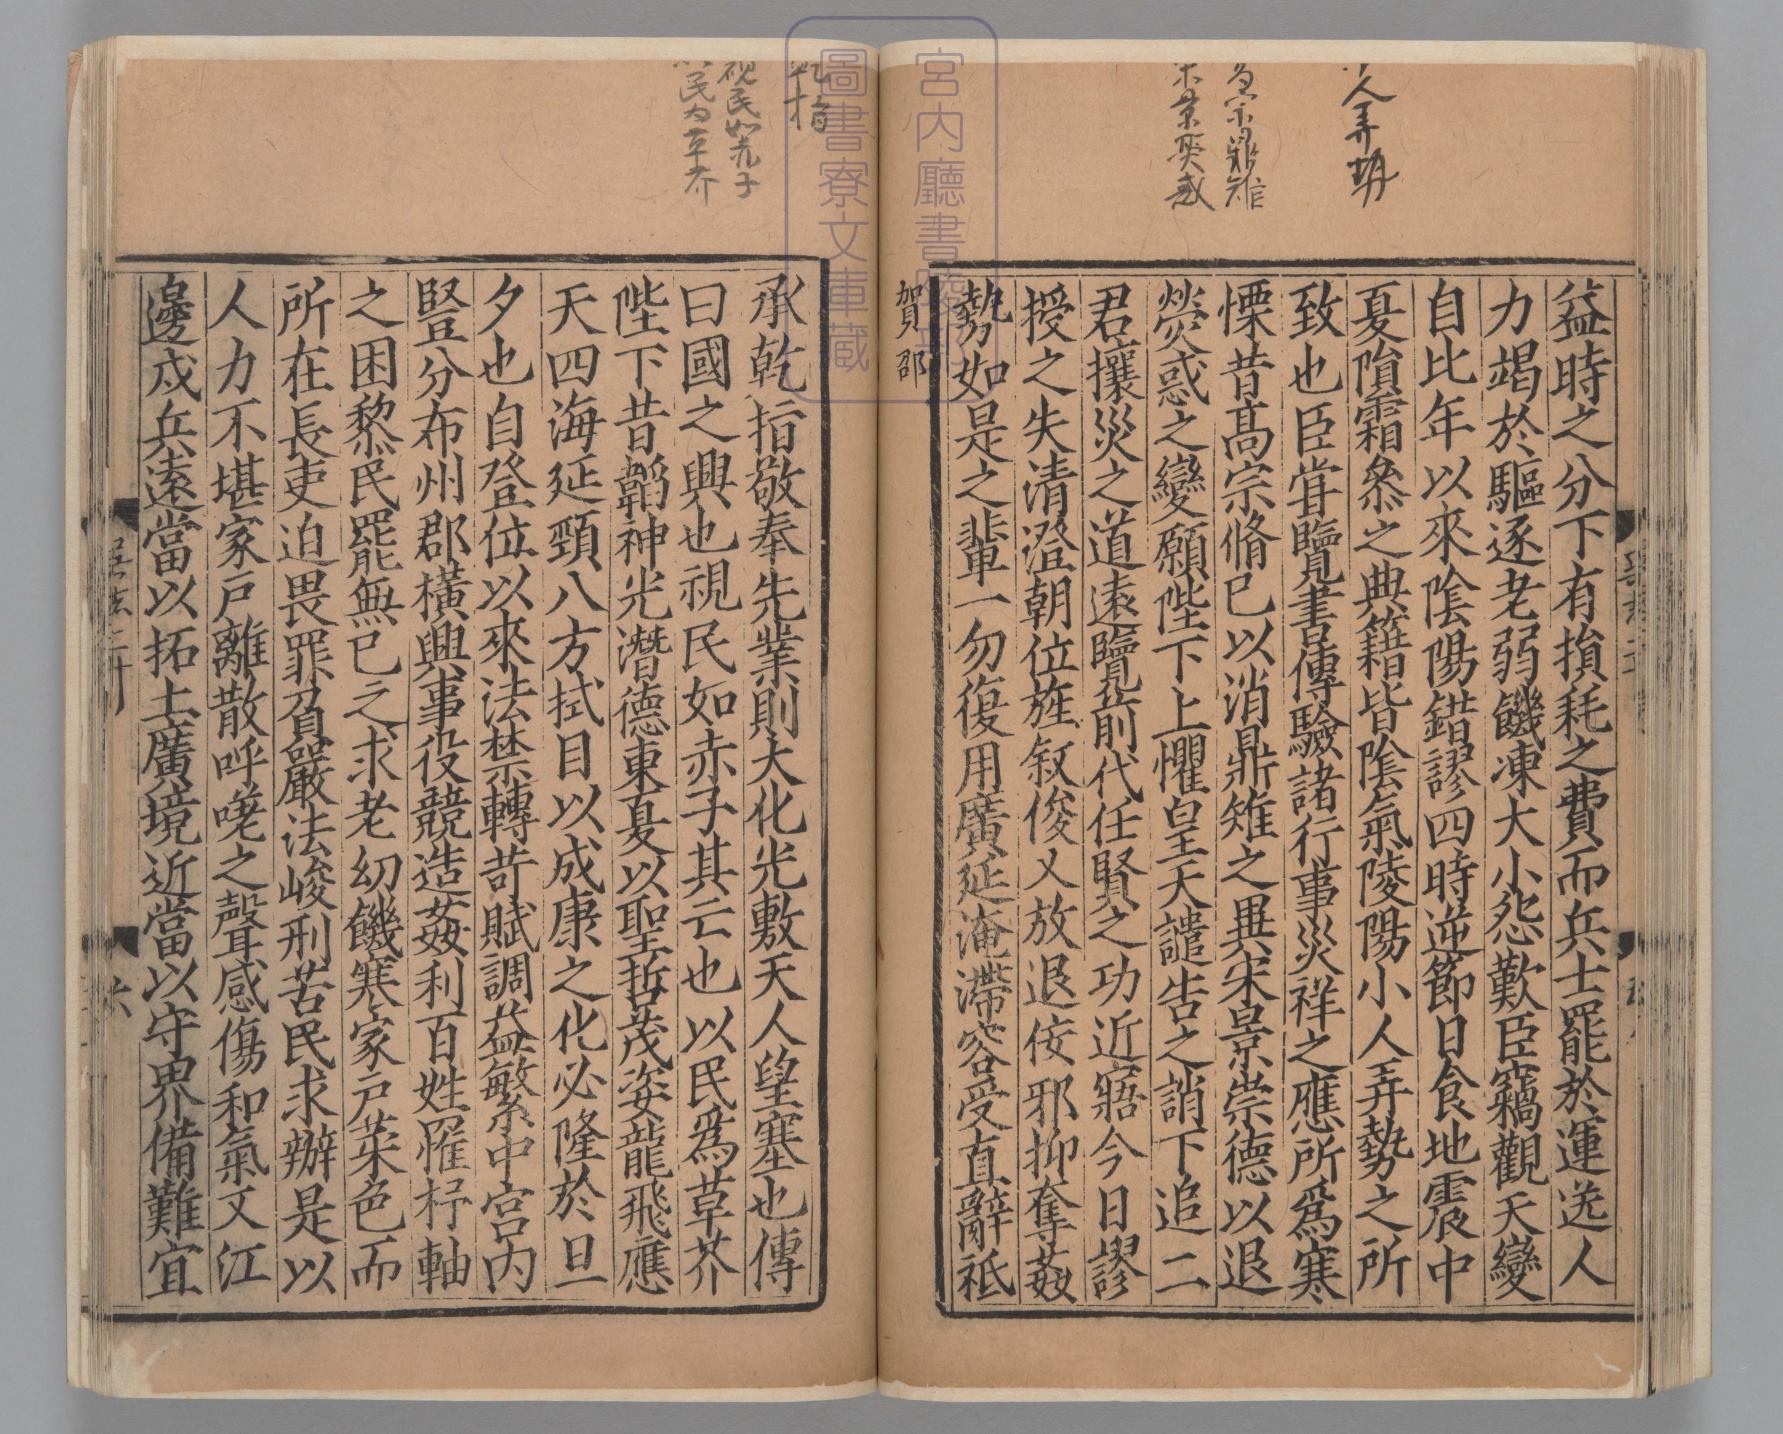 人弄勢
高宗鼎雉
宋景熒惑
益時之分下有損耗之費而兵士罷於運送人
力竭於驅逐老弱饑凍大小怨歎臣竊觀天變
自比年以來陰陽錯謬四時逆節日食地震中
夏隕霜叅之典籍皆陰氣陵陽小人弄勢之所
致也臣甞覽書傳驗諸行事災祥之應所爲寒
慄昔髙宗脩已以消鼎雉之異宋景崇德以退
熒惑之變願陛下上懼皇天譴告之誚下追二
君攘災之道遠覽前代任賢之功近寤今日謬
授之失清澄朝位旌叙俊乂放退佞邪抑奪姦
勢如是之輩一勿復用廣延淹滯容受直辭祗
賀邵
宮内廳書陵部
圖書寮文庫藏
乾指
視民如赤子
民爲草芥
承乾指敬奉先業則大化光敷天人望塞也傳
曰國之興也視民如赤子其亡也以民爲草芥
陛下昔韜神光潛德東夏以聖哲茂姿龍飛應
天四海延頸八方拭目以成康之化必隆於旦
夕也自登位以來法禁轉苛賦調益繁中宮内
豎分布州郡橫興事役競造姦利百姓罹杼軸
之困黎民罷無已之求老幼饑寒家戶菜色而
所在長吏迫畏罪負嚴法峻刑苦民求辦是以
人力不堪家戶離散呼嗟之聲感傷和氣又江
邊戍兵遠當以拓土廣境近當以守界備難宜
吳志二十
六